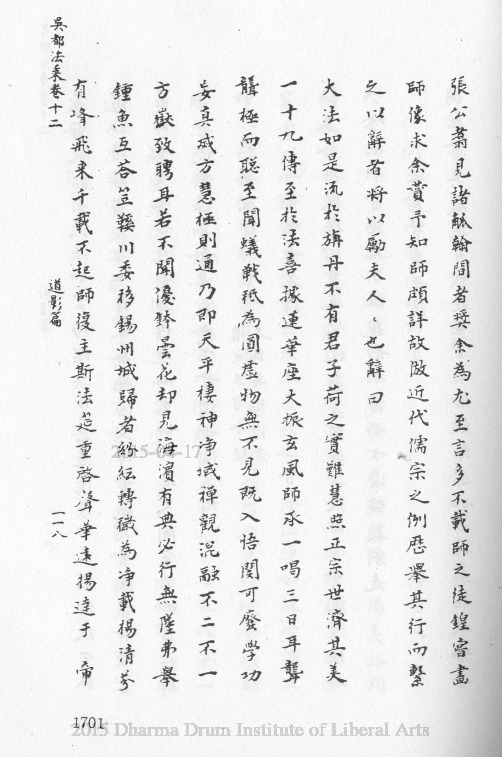 張公翥見諸觚翰間者奨余為尤至言多不載師之徒鍠嘗畫
師像求余賛予知師頗詳故倣近代儒宗之例歴舉其行而繫
之以辭者将以勵夫人〻也辭曰
大法如是流於旃丹不有君子荷之實難慧照正宗世濟其美
一十九傳至於法喜據連華座大振玄風師承一喝三日耳聾
聾極而聪至聞蟻戦秖為圓虚物無不見既入悟関可廢學功
妄真戒方慧極則通乃即天平棲神净域禅觀混融不二不一
方嶽致聘耳若不聞優鉢曇花却見海濱有典必行無墜弗舉
鍾魚互荅笠鞵川委移錫州城歸者紛紜轉穢為净載揚清芬
有峰飛来千載不起師復主斯法筵重啓聲華遠揚達于 帝
吳都法乘卷十二
道影篇
一一八
1701
2015-04-17
2015 Dharma Drum Institute of Liberal Arts